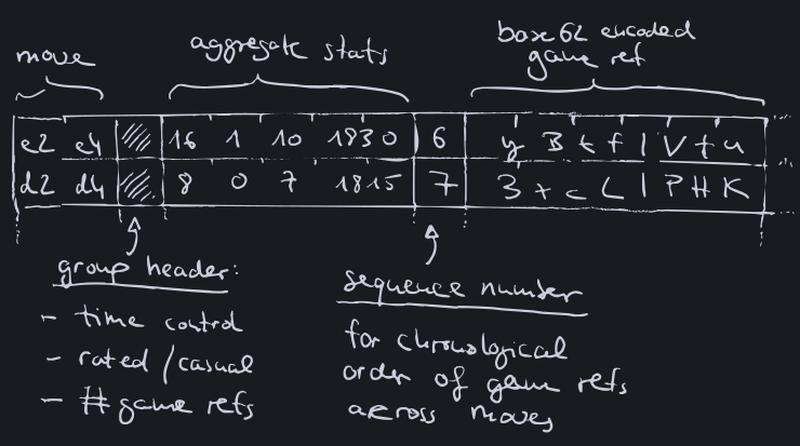 move
aggregate stats
base62 encoded
game ref
e2 e4 16 1 10 1830 6 y B t f l V t u
d2 d4 8 0 7 1815 7 3 t c L l P H K
group header:
- time control
- rated/casual
- # game refs
sequence number
for chronological
order of game refs
across moves